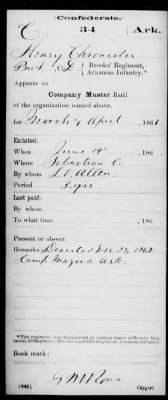 Confederate.
C 34 Ark.
Henry Chronister
Pvt, Co. { Brooks' Regiment, Arkansas Infantry.*
Appears on
Company Muster Roll
of the organization named above,
for March & April, 1863
Enlisted:
When June 14, 186
Where Sebastian C.
By whom Lt. Allen
Period 3 yrs
Last paid:
By whom
To what time , 186 .
Present or absent
Remarks: Deserted Dec 22, 1862
Camp Mazard Ark.
Book mark:
(642) Copyist.